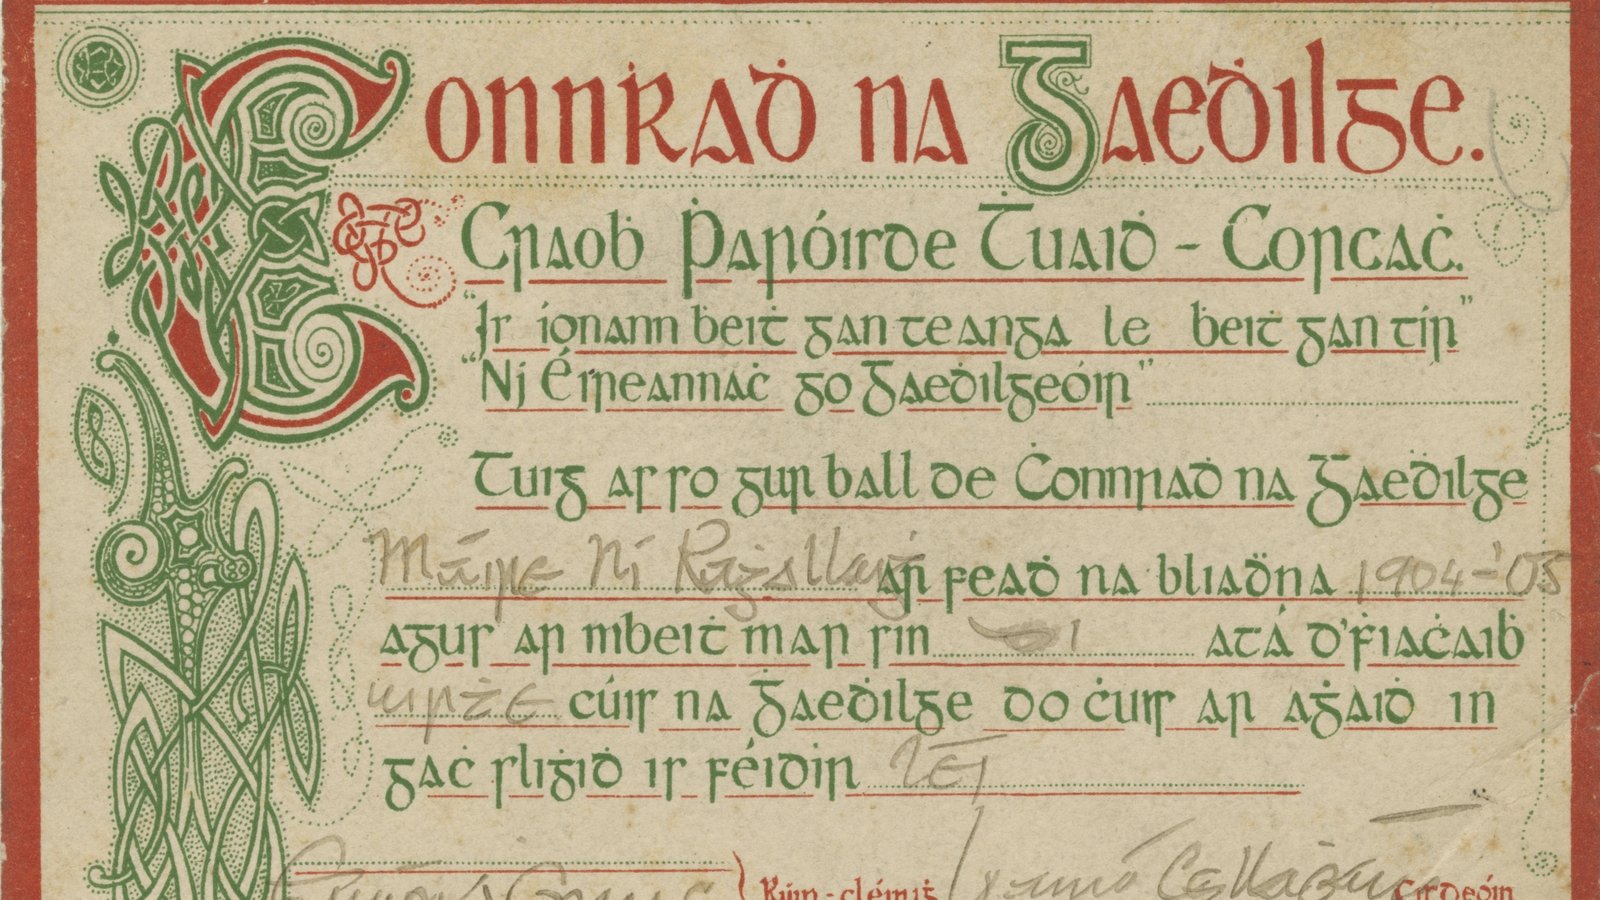 Connraḋ na Gaeḋilge.
Craoḃ Ṗaróisde Ṫuaiḋ - Corcaċ.
"Is ionann ḃeiṫ gan teanga le ḃeiṫ gan tír"
"Ní Éireannaċ go Gaeḋilgeóir"
Tuig as so gur ball de Ċonnraḋ na Gaeḋilge
Máire Ní Raġallaiġ ar feaḋ na bliaḋna 1904-'05
agus ar mbeiṫ mar sin di atá d'ḟiaċaiḃ
uirṫe cúis na Gaeḋilge do ċur ar aġaiḋ in
gaċ sliġiḋ is féidir léi
Rún-cléiriġ Cisdeóir